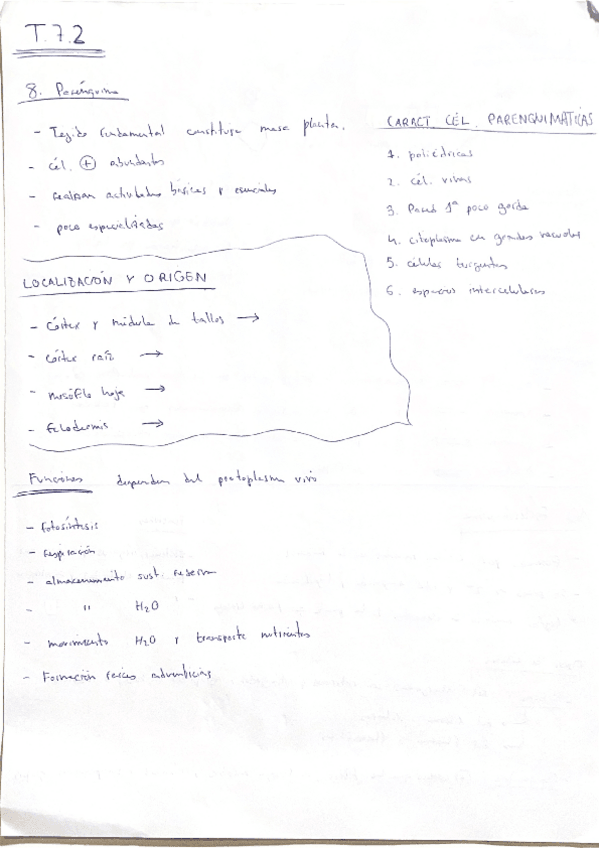 T.7.2
8. Parénquima
- Tejido fundamental constituye masa planta.
- cél. ⊕ abundantes
- realizan actividades básicas y esenciales
- poco especializadas
CARACT. CÉL. PARENQUIMÁTICAS
1. poliédricas
2. cél. vivas
3. Pared 1ª poco gorda
4. citoplasma con grandes vacuolas
5. células turgentes
6. espacios intercelulares
LOCALIZACIÓN Y ORIGEN
- Córtex y médula de tallos →
- Córtex raíz →
- mesófilo hoja →
- felodermis →
Funciones dependen del protoplasma vivo
- fotosíntesis
- respiración
- almacenamiento sust. reserva
- " H₂O
- movimiento H₂O y transporte nutrientes
- Formación raíces adventicias